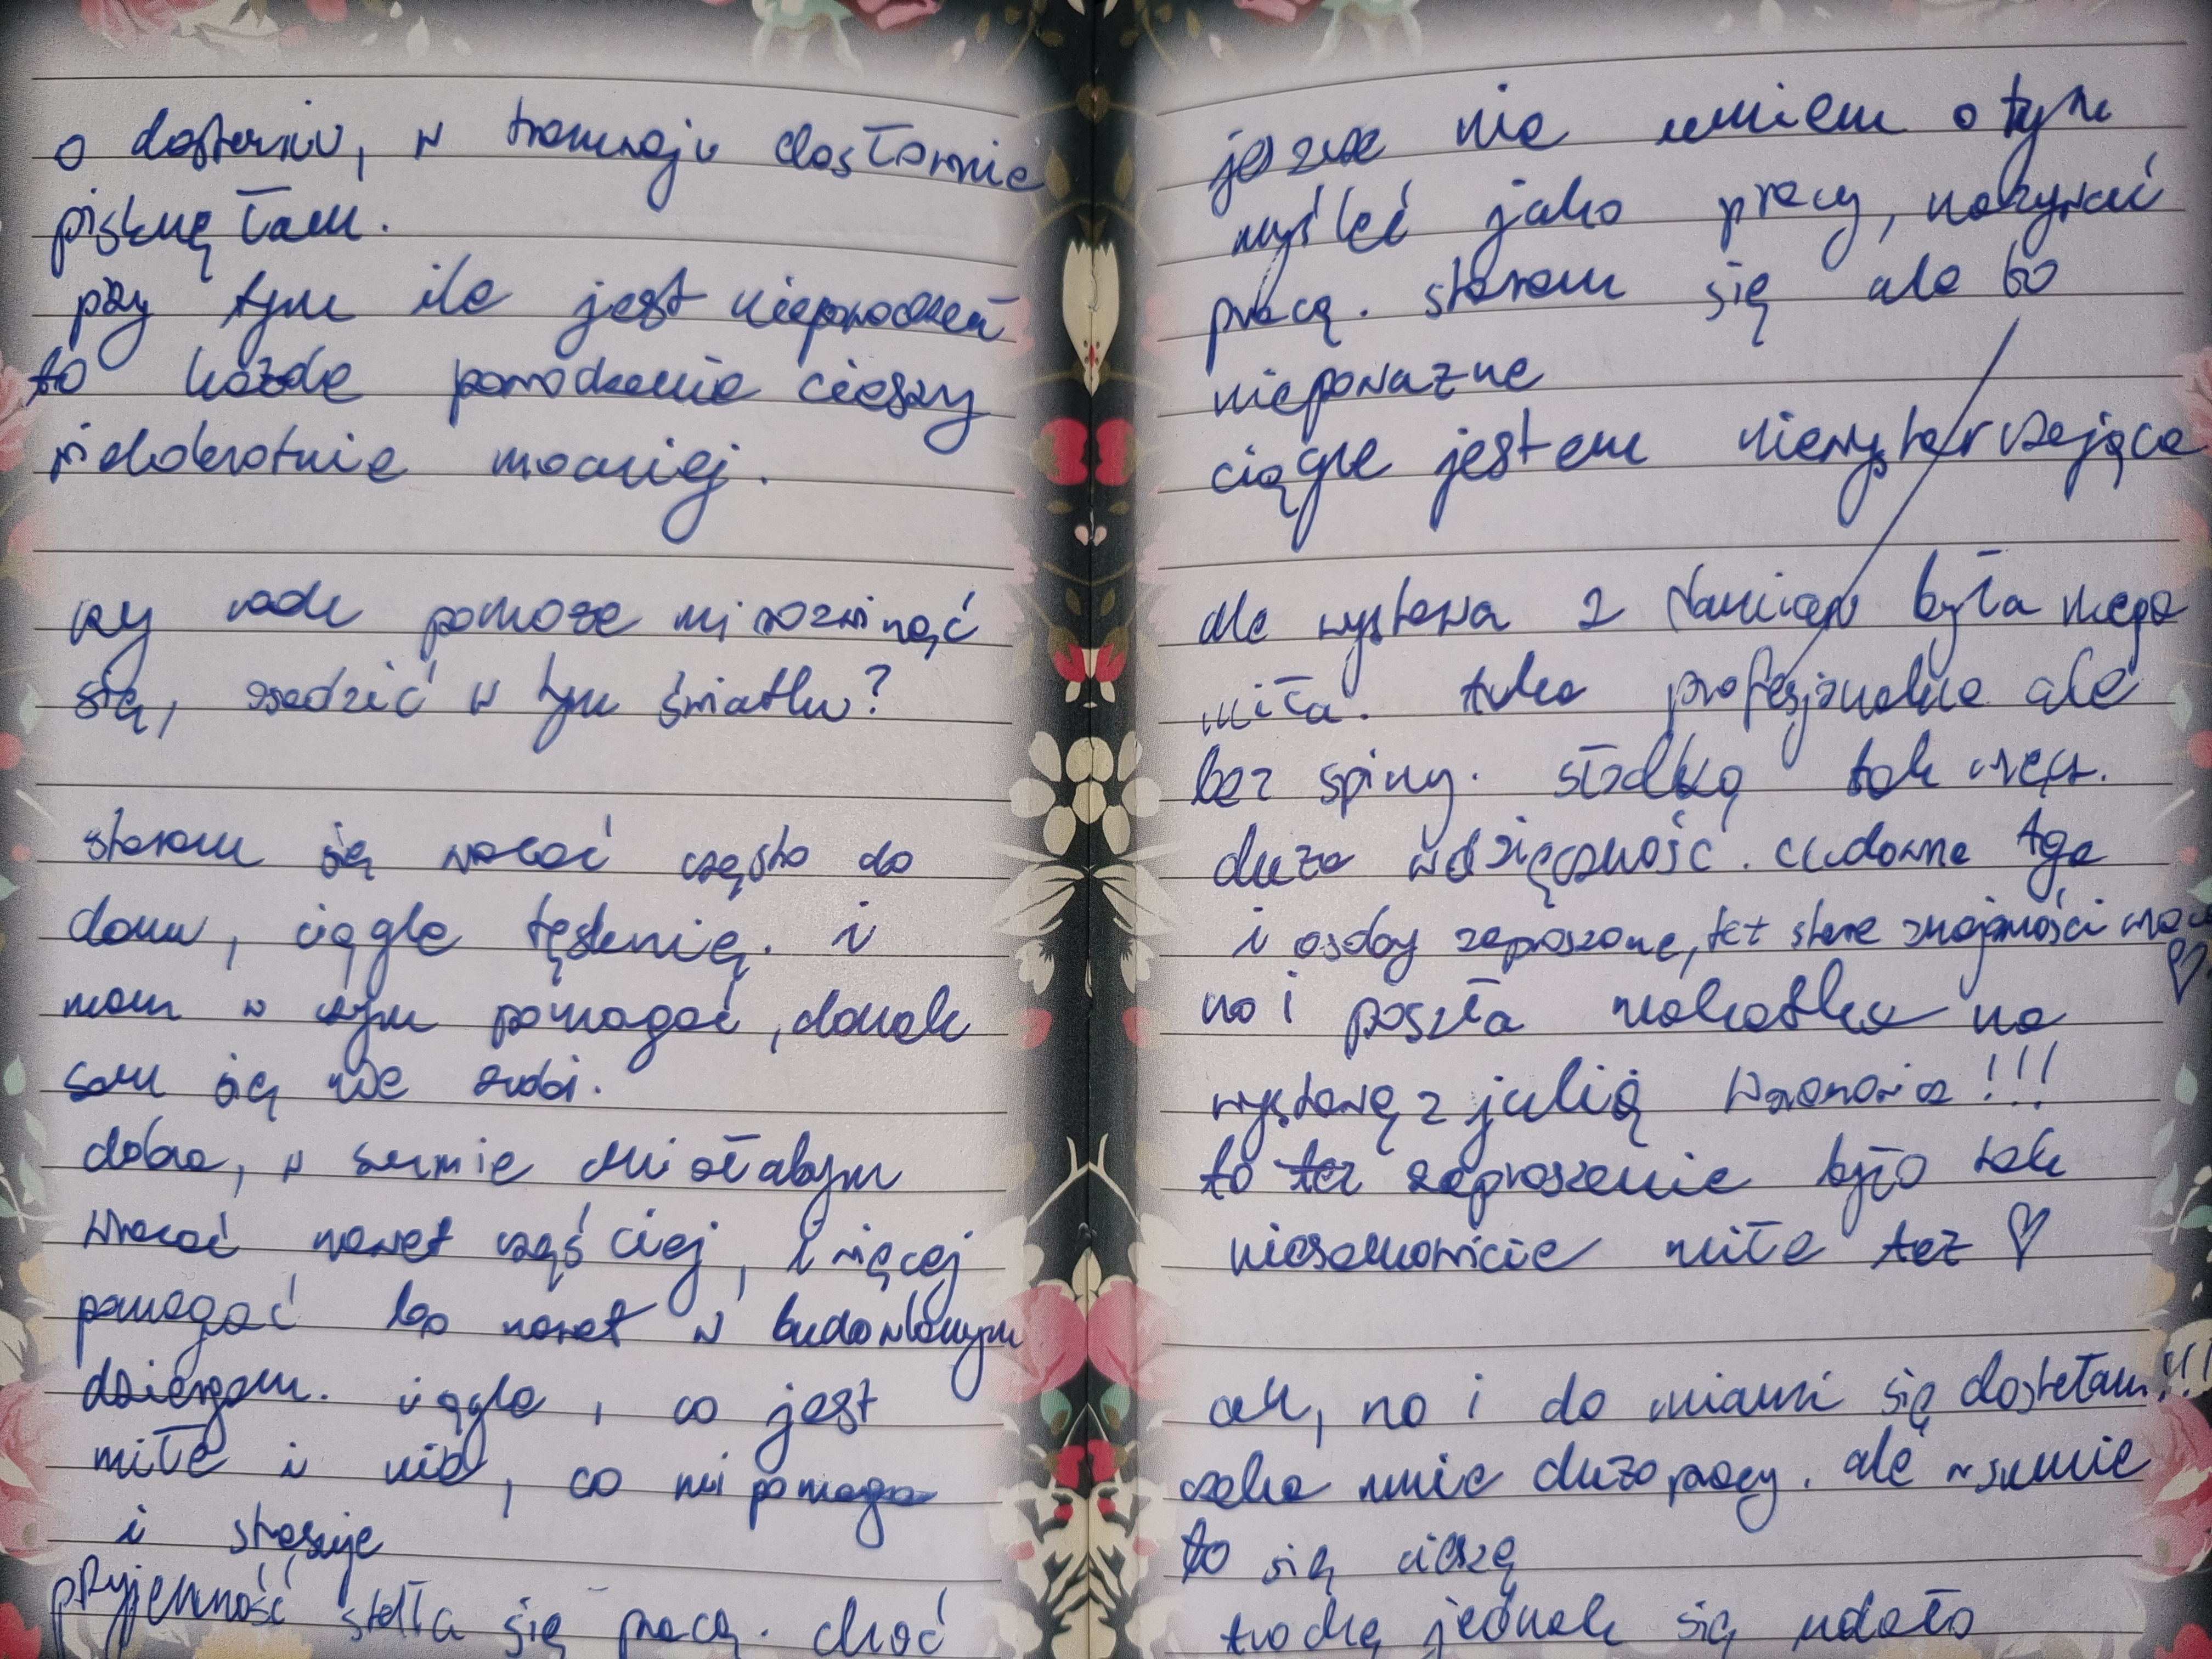 o dostaniu, w tramwaju dosłownie
pisknęłam.
przy tym ile jest niepowodzeń
to każde powodzenie cieszy
wielokrotnie mocniej.
czy rade pomoże mi rozwinąć
się, osadzić w tym światku?
staram się wracać często do
domu, ciągle tęsknię. i
mam w czym pomagać, domek
sam się nie zrobi.
dobra, w sumie chciałabym
wracać nawet częściej, i więcej
pomagać bo nawet w budowlanym
dziergam. ciągle, co jest
miłe i nie, co mi pomaga
i stresuje
przyjemność stała się pracą. choć
jeszcze nie umiem o tym
myśleć jako pracy, nazywać
pracą. staram się ale to
niepoważne
ciągle jestem niewystarczająca
ale wystawa z była mega
miła. taka profesjonalna ale
bez spiny. słodką tak rzecz.
duża wdzięczność. cudowna Aga
i osoby zaproszone, też stare znajomości
♡
no i poszła makatka na
wystawę z julią !!!
to też zaproszenie było tak
niesamowicie miłe też ♡
ach, no i do miami się dostałam!!!
czeka mnie dużo pracy. ale w sumie
to się cieszę
trochę jednak się udało